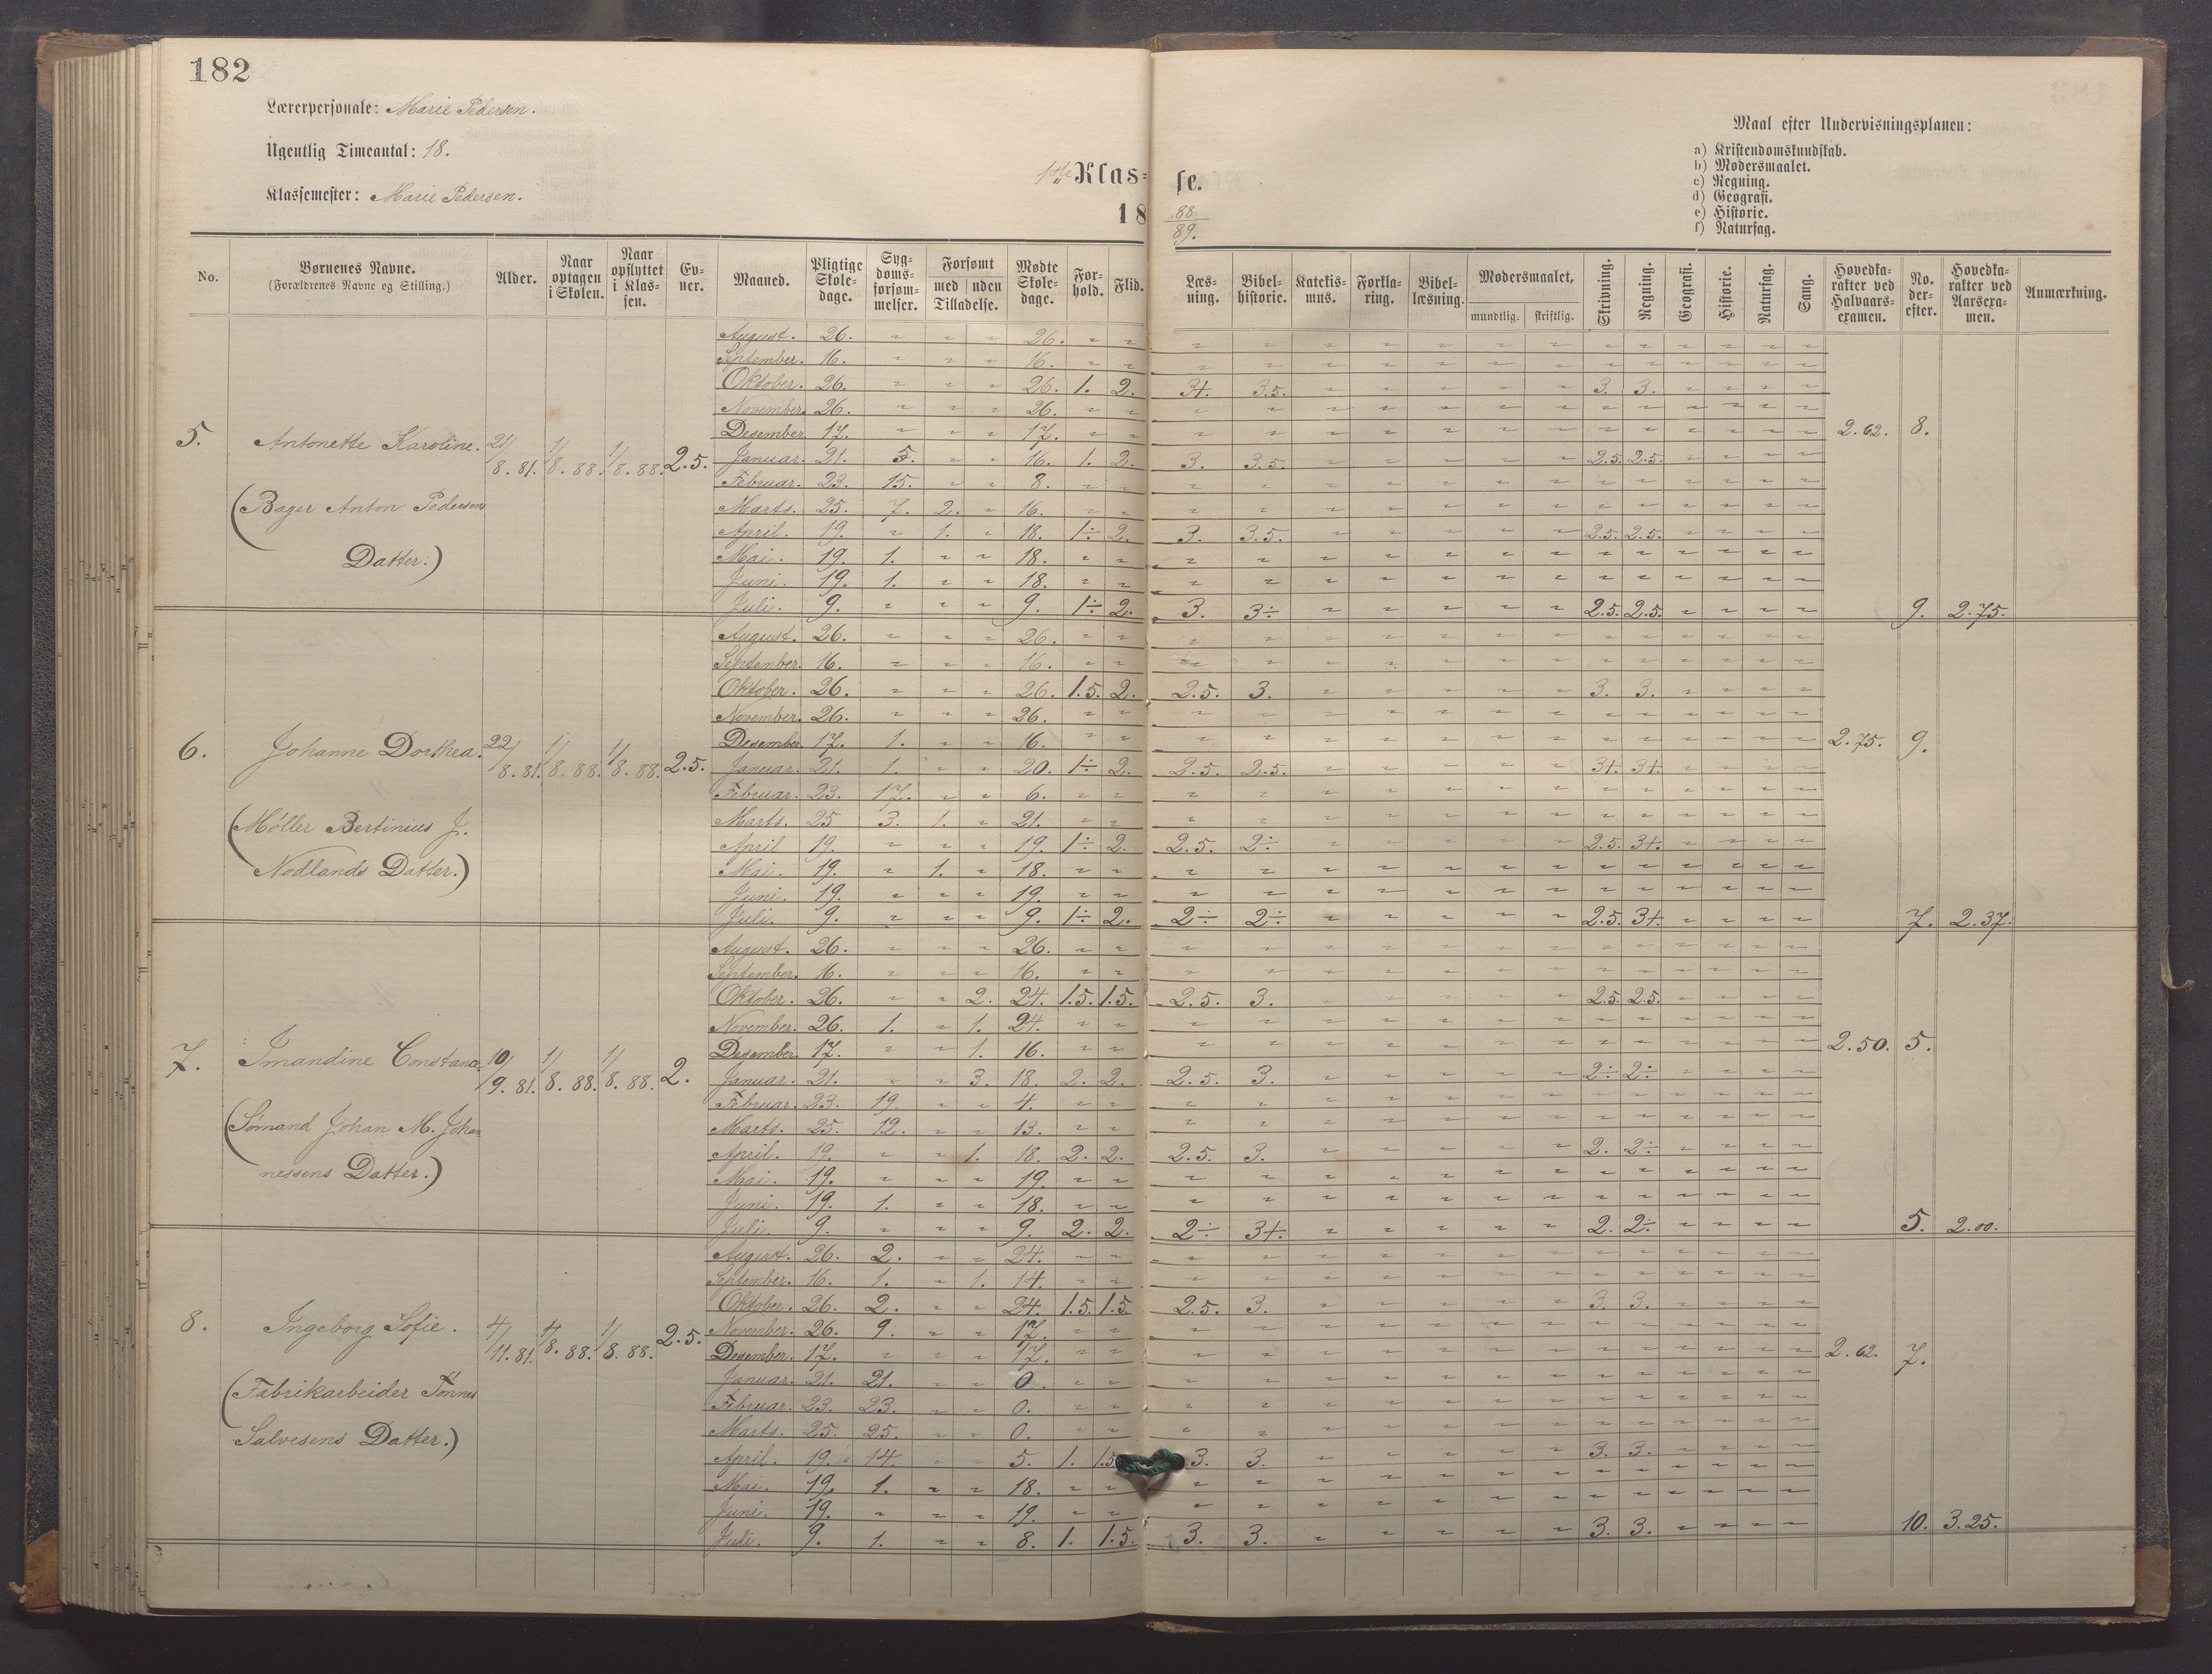 182
Lærerpersonale: Marie Pedersen.
Ugentlig Timeantal: 18.
Klassemester: Marie Pedersen.
1ste Klasse.
18 88/89.
Maal efter Undervisningsplanen:
a) Kristendomskundskab.
b) Modersmaalet.
c) Regning.
d) Geografi.
e) Historie.
f) Naturfag.
No. | Børnenes Navne. (Forældrenes Navne og Stilling.) | Alder. | Naar optagen i Skolen. | Naar opflyttet i Klassen. | Evner. | Maaned. | Pligtige Skoledage. | Sygdomsforsømmelser. | Forsømt med / uden Tilladelse. | Mødte Skoledage. | Forhold. | Flid. | Læsning. | Bibelhistorie. | Katekismus. | Forklaring. | Bibellæsning. | Modersmaalet, mundtlig. / skriftlig. | Skrivning. | Regning. | Geografi. | Historie. | Naturfag. | Sang. | Hovedkarakter ved Halvaarsexamen. | No. derefter. | Hovedkarakter ved Aarsexamen. | Anmærkning.
5. Antonette Karoline. 21/8. 81. 1/8. 88. 1/8. 88. 2.5.
(Bager Anton Pedersens
Datter.)
August. 26. " " " 26. " "
September. 16. " " " 16. " "
Oktober. 26. " " " 26. 1. 2. 3+. 3.5. 3. 3.
November. 26. " " " 26. " "
Desember. 17. " " " 17. " " 2.62. 8.
Januar. 21. 5. " " 16. 1. 2. 3. 3.5. 2.5. 2.5.
Februar. 23. 15. " " 8. " "
Marts. 25. 7. 2. " 16. " "
April. 19. " 1. " 18. 1÷ 2. 3. 3.5. 2.5. 2.5.
Mai. 19. 1. " " 18. " "
Juni. 19. 1. " " 18. " "
Juli. 9. " " " 9. 1÷ 2. 3. 3÷ 2.5. 2.5. 9. 2.75.
6. Johanne Dorthea. 22/8. 81. 1/8. 88. 1/8. 88. 2.5.
(Møller Bertinius J.
Nodlands Datter.)
August. 26. " " " 26. " "
September. 16. " " " 16. " "
Oktober. 26. " " " 26. 1.5. 2. 2.5. 3. 3. 3.
November. 26. " " " 26. " "
Desember. 17. 1. " " 16. " " 2.75. 9.
Januar. 21. 1. " " 20. 1÷ 2. 2.5. 2.5. 3+. 3+.
Februar. 23. 17. " " 6. " "
Marts. 25 3. 1. " 21. " "
April 19. " " " 19. 1÷ 2. 2.5. 2÷ 2.5. 3+.
Mai. 19. " 1. " 18. " "
Juni. 19. " " " 19. " "
Juli. 9. " " " 9. 1÷ 2. 2÷ 2÷ 2.5. 3+. 7. 2.37.
7. Imandine Constance. 10/9. 81. 1/8. 88. 1/8. 88. 2.
(Sømand Johan M. Johan
nessens Datter.)
August. 26. " " " 26. " "
September. 16. " " " 16. " "
Oktober. 26. " " 2. 24. 1.5. 1.5. 2.5. 3. 2.5. 2.5.
November. 26. 1. " 1. 24. " "
Desember. 17. " " 1. 16. " " 2.50. 5.
Januar. 21. " " 3. 18. 2. 2. 2.5. 3. 2÷ 2÷
Februar. 23. 19. " " 4. " "
Marts. 25. 12. " " 13. " "
April. 19. " " 1. 18. 2. 2. 2.5. 3. 2. 2÷
Mai. 19. " " " 19. " "
Juni. 19. 1. " " 18. " "
Juli. 9. " " " 9. 2. 2. 2÷ 3+. 2. 2÷ 5. 2.00.
8. Ingeborg Sofie. 4/11. 81. 1/8. 88. 1/8. 88. 2.5.
(Fabrikarbeider Tønnes
Salvesens Datter.)
August. 26. 2. " " 24. " "
September. 16. 1. " 1. 14. " "
Oktober. 26. 2. " " 24. 1.5. 1.5. 2.5. 3. 3. 3.
November. 26. 9. " " 17. " "
Desember. 17. " " " 17. " " 2.62. 7.
Januar. 21. 21. " " 0. " "
Februar. 23. 23. " " 0. " "
Marts. 25. 25. " " 0. " "
April. 19. 14. " " 5. 1. 1.5. 3. 3. 3. 3.
Mai. 19. 1. " " 18. " "
Juni. 19. " " " 19. " "
Juli. 9. 1. " " 8. 1. 1.5. 3. 3. 3. 3. 10. 3.25.